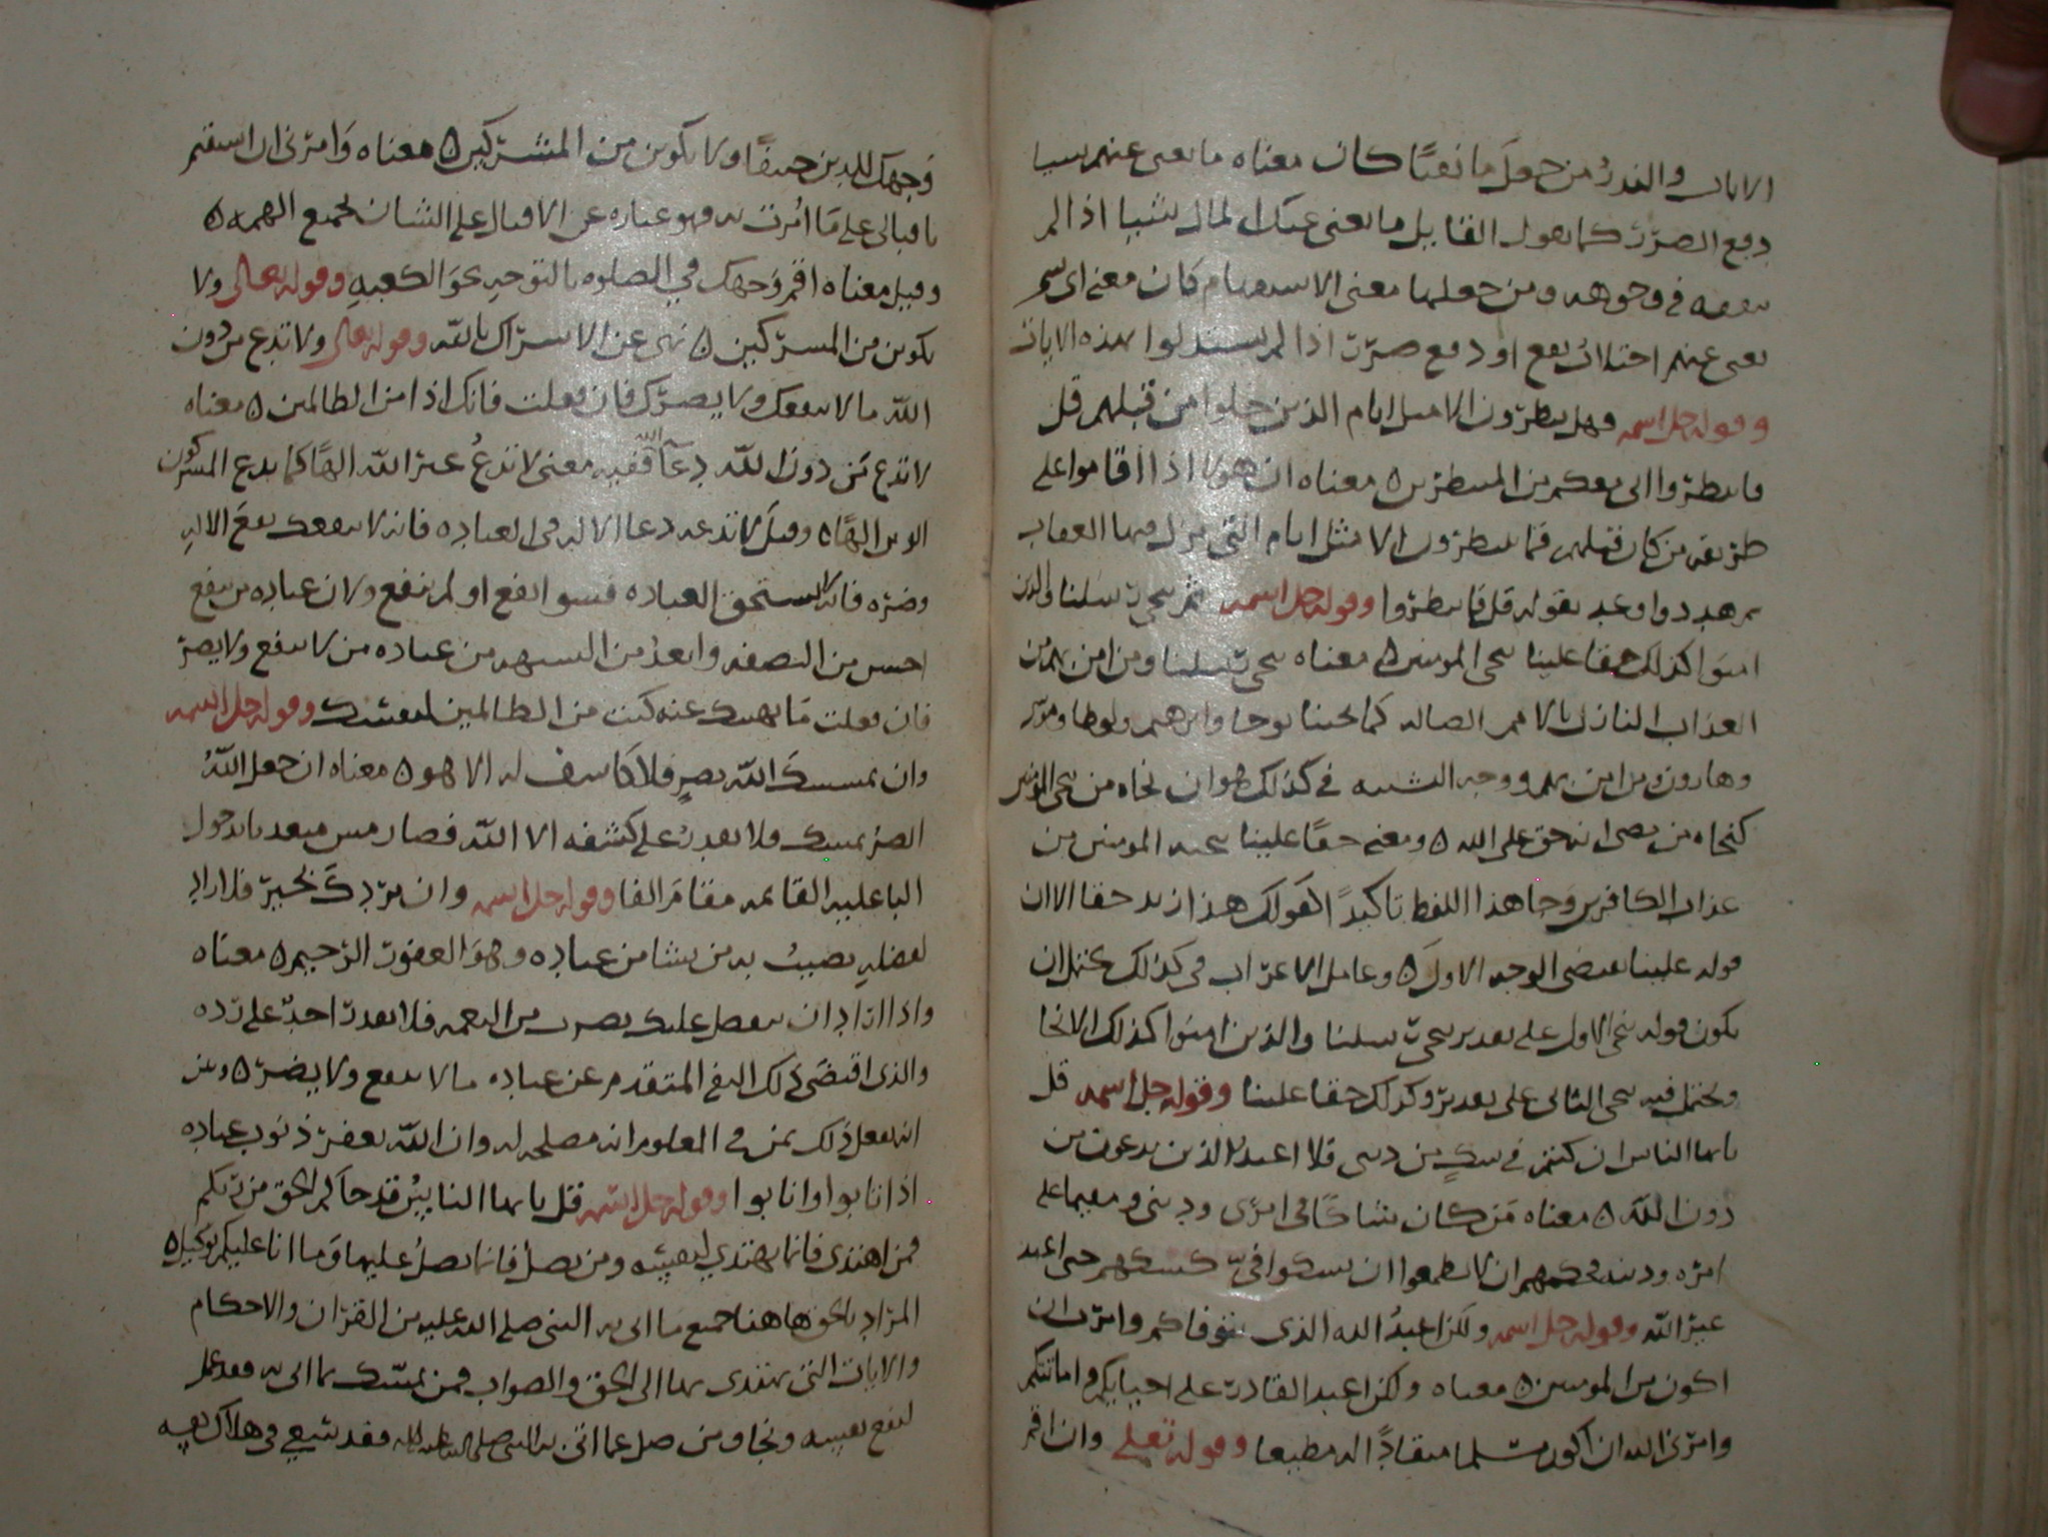 الايات والنذر من جعل ما نفيًا كان معناه ما تغني عنهم شيا
دفع الضرر كما يقول القايل ما يغني عنك المال شيا اذا لم
تنفقه في وجوهه ومن جعلها معنى الاستفهام كان معنى اي شي
يغني عنهم اجتلاب نفع او دفع ضرر اذا لم يستدلوا بهذه الايات
وقوله جل اسمه فهل ينتظرون الا مثل ايام الذين خلوا من قبلهم قل
فانتظروا اني معكم من المنتظرين ه معناه ان هولا اذا اقاموا على
طريقه من كان قبلهم فما ينتظرون الا مثل ايام التي نزل فيها العقاب
بهم وقوله قل فانتظروا وقوله جل اسمه ثم ننجي رسلنا والذين
امنوا كذلك حقا علينا ننجي المومنين ه معناه ننجي رسلنا ومن امن بهم من
العذاب النازل بالامم الضاله كما نجينا نوحا وابرهيم ولوطا وموسى
وهارون ومن امن بهم ووجه التشبيه في كذلك هو ان نجاه من ننجي المومنين
كنجاه من مضى انه حق على الله ه ومعنى حقا علينا ننجي المومنين من
عذاب الكافرين وجا هذا اللفظ تاكيدًا كقولك هذا زيد حقا الا ان
قوله علينا يقتضي الوجه الاول ه وعامل الاعراب في كذلك يحتمل ان
يكون قوله ننجي الاول على تقدير ننجي رسلنا والذين امنوا كذلك الانجا
ويحتمل فيه ننجي الثاني على تقدير وكذلك حقا علينا وقوله جل اسمه قل
يايها الناس ان كنتم في شك من ديني فلا اعبد الذين تدعون من
دون الله ه معناه من كان شاكًا في امري وديني ومقيما على
امره ودينه فحكمهم ان لا يطمعوا ان يشكوا في كشكهم حتى اعبد
غير الله وقوله جل اسمه ولكن اعبدُ الله الذي يتوفاكم وامرت ان
اكون من المومنين ه معناه ولكن اعبد القادر على احيايكم واماتتكم
وامرني الله ان اكون مسلما منقادًا اليه مطيعا وقوله تعالى وان اقم
وَجهك للدين حنيفًا ولا تكونن من المشركين ه معناه وَامرني ان استقيم
باقبالي على مَا اُمرت به فهو عباره عن الاقبال على الشان بجميع الهمه ه
وقيل معناه اقم وَجهك في الصلوه بالتوحيد نحوَ الكعبهِ وقوله تعالى ولا
تكونن من المشركين ه نهي عن الاشراك بالله وقوله تعالى ولا تدع من دون
الله ما لا ينفعك ولا يضرك فان فعلت فانك اذا من الظالمين ه معناه
لا تدع مَن دون الله دعآ الله ففيه معنى لا تدعُ غير الله الهًا كما يدع المشركون
الوثن الهًا ه وقيلَ لا تدعه دعا الاله في العباده فانه لا ينفعك نفعَ الاله
وضرّه فانه لا يستحق العباده فسوا نفع او لم ينفع ولان عباده من ينفع
احسن من الصفه وابعدُ من الشبهه من عباده من لا ينفع ولا يضر
فان فعلت مَا نهيتك عنه كنت من الظالمين لنفسك وقوله جل اسمه
وان يمسسكَ الله بضرٍ فلا كَاشف له الا هو ه معناه ان جعل اللهُ
الضر يمسك فلا يقدرُ على كشفه الا الله فصار مس متعد بالدخول
البا عليه القايمه مقامَ الفا وقوله جل اسمه وان يردكَ بخير فلا راد
لفضلهِ يصيبُ به من يشا من عباده وهوَ الغفور الرحيم ه معناه
واذا اراد ان يتفضل عليك بضرب من النعمه فلا يقدر احدٌ على رده
والذي اقتضَى ذلك النفع المتقدم عن عباده ما لا ينفع ولا يضر ه وبين
انه يفعل ذلك بمن في المعلوم انه مصلحه له وان الله يغفر ذنوب عباده
اذا تابوا وانابوا وقوله جل اسمه قل يايها الناسُ قد جآكم الحق من ربكم
فمن اهتدى فانما يهتدي لنفسه ومن يضلُ فانما يضلُ عليها وَما انا عليكم بوَكيل ه
المراد بالحق هاهنا جميع ما اتى به النبي صلى الله عليه من القران والاحكام
والايات التي يهتدى بها الى الحق والصواب فمن تمسّك بما اتى به فقد عمل
لنفع نفسه ونجا ومن ضل عما اتى به النبي صلى الله عليه واله فقد سَعى في هلاك نفسه